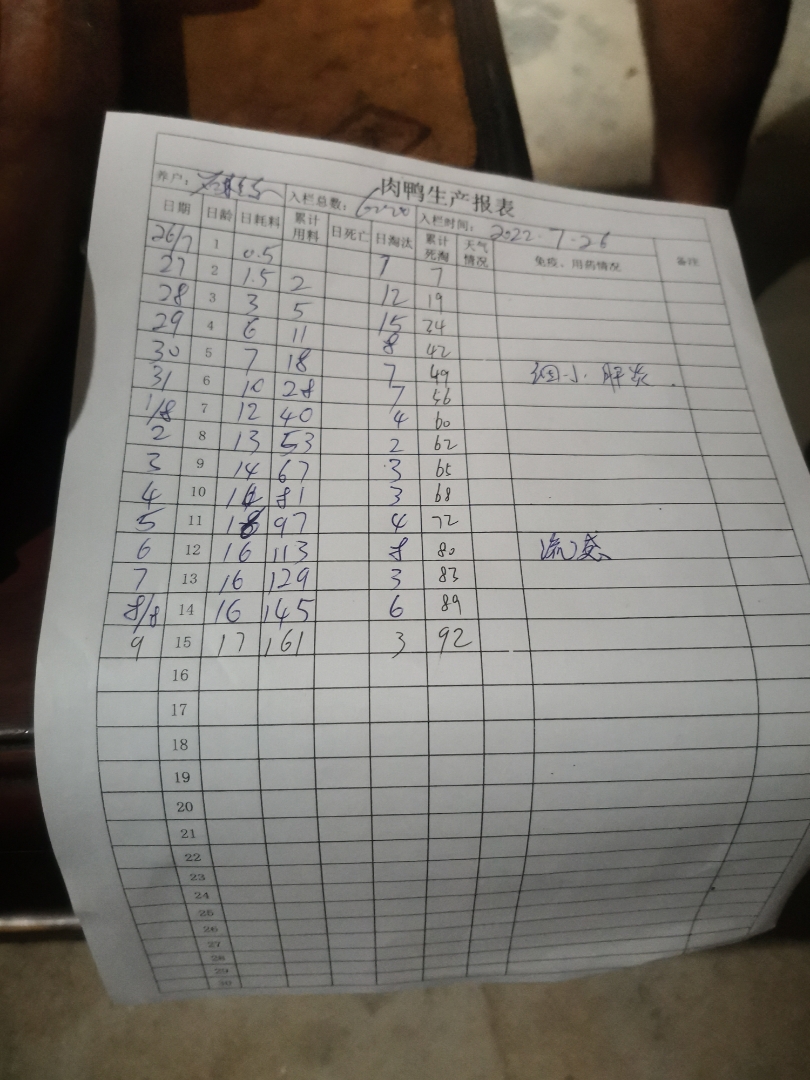 肉鸭生产报表
养户： 入栏总数：6220 入栏时间：2022.7.26
日期 日龄 日耗料 累计用料 日死亡 日淘汰 累计死淘 天气情况 免疫、用药情况 备注
26/7 1 0.5 7 7
27 2 1.5 2 12 19
28 3 3 5 15 34
29 4 6 11 8 42
30 5 7 18 7 49 细小.肝炎.
31 6 10 28 7 56
1/8 7 12 40 4 60
2 8 13 53 2 62
3 9 14 67 3 65
4 10 14 81 3 68
5 11 16 97 4 72
6 12 16 113 8 80 流感
7 13 16 129 3 83
8/8 14 16 145 6 89
9 15 17 161 3 92
16
17
18
19
20
21
22
23
24
25
26
27
28
29
30